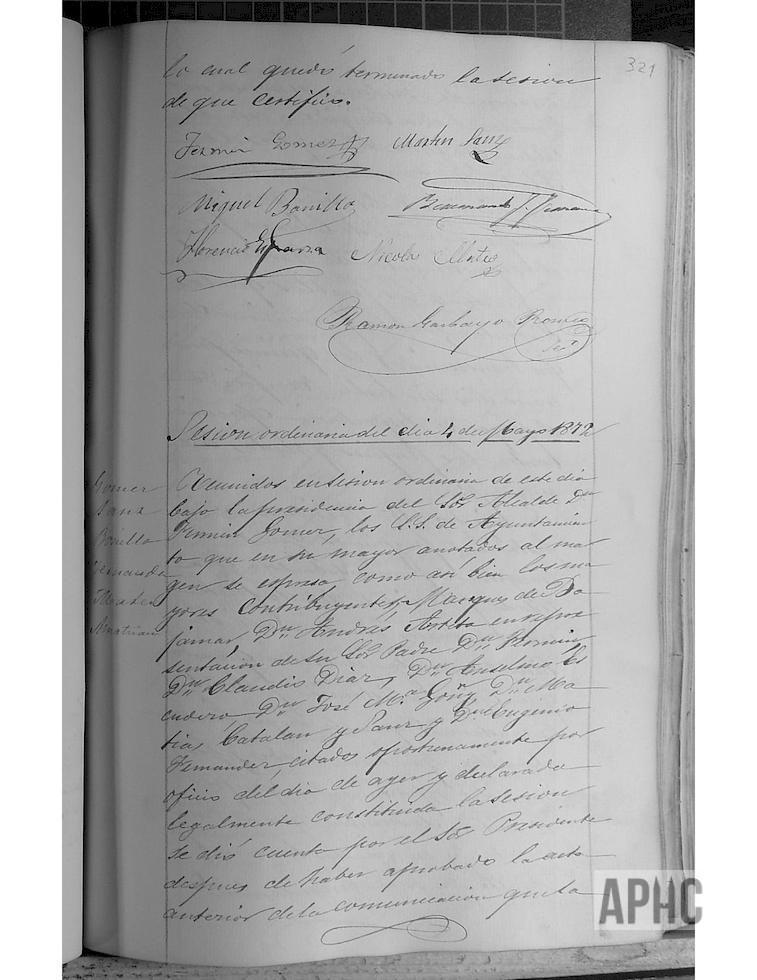 321
lo cual quedó terminado la sesion
de que certifico.
Fermin Gomez Martin Sanz
Miguel Bonilla
Florencio Nicolas Mateo
Ramon Garbayo
Srio
Sesion ordinaria del dia 4 de Mayo 1872
Gomez
Sanz
Bonilla
Mateo
Reunidos en sesion ordinaria de este dia
bajo la presidencia del Sor Alcalde Dn
Fermin Gomez, los S.S. de Ayuntamien
to que en su mayor anotados al mar
gen se espresa, como asi bien los ma
yores contribuyentes, Marques de
jamar, Dn Andrés en repre
sentacion de su Sor Padre Dn
Dn Claudio Diaz, Dn Anselmo Es
cudero, Dn José Ma Goñi, Dn Ma
tias Catalan y Sanz y Dn Eugenio
Fernandez, citados oportunamente por
oficio del dia de ayer y declarada
legalmente constituida la sesion
se dió cuenta por el Sor Presidente
despues de haber aprobado la acta
anterior de la comunicacion que la
APHC